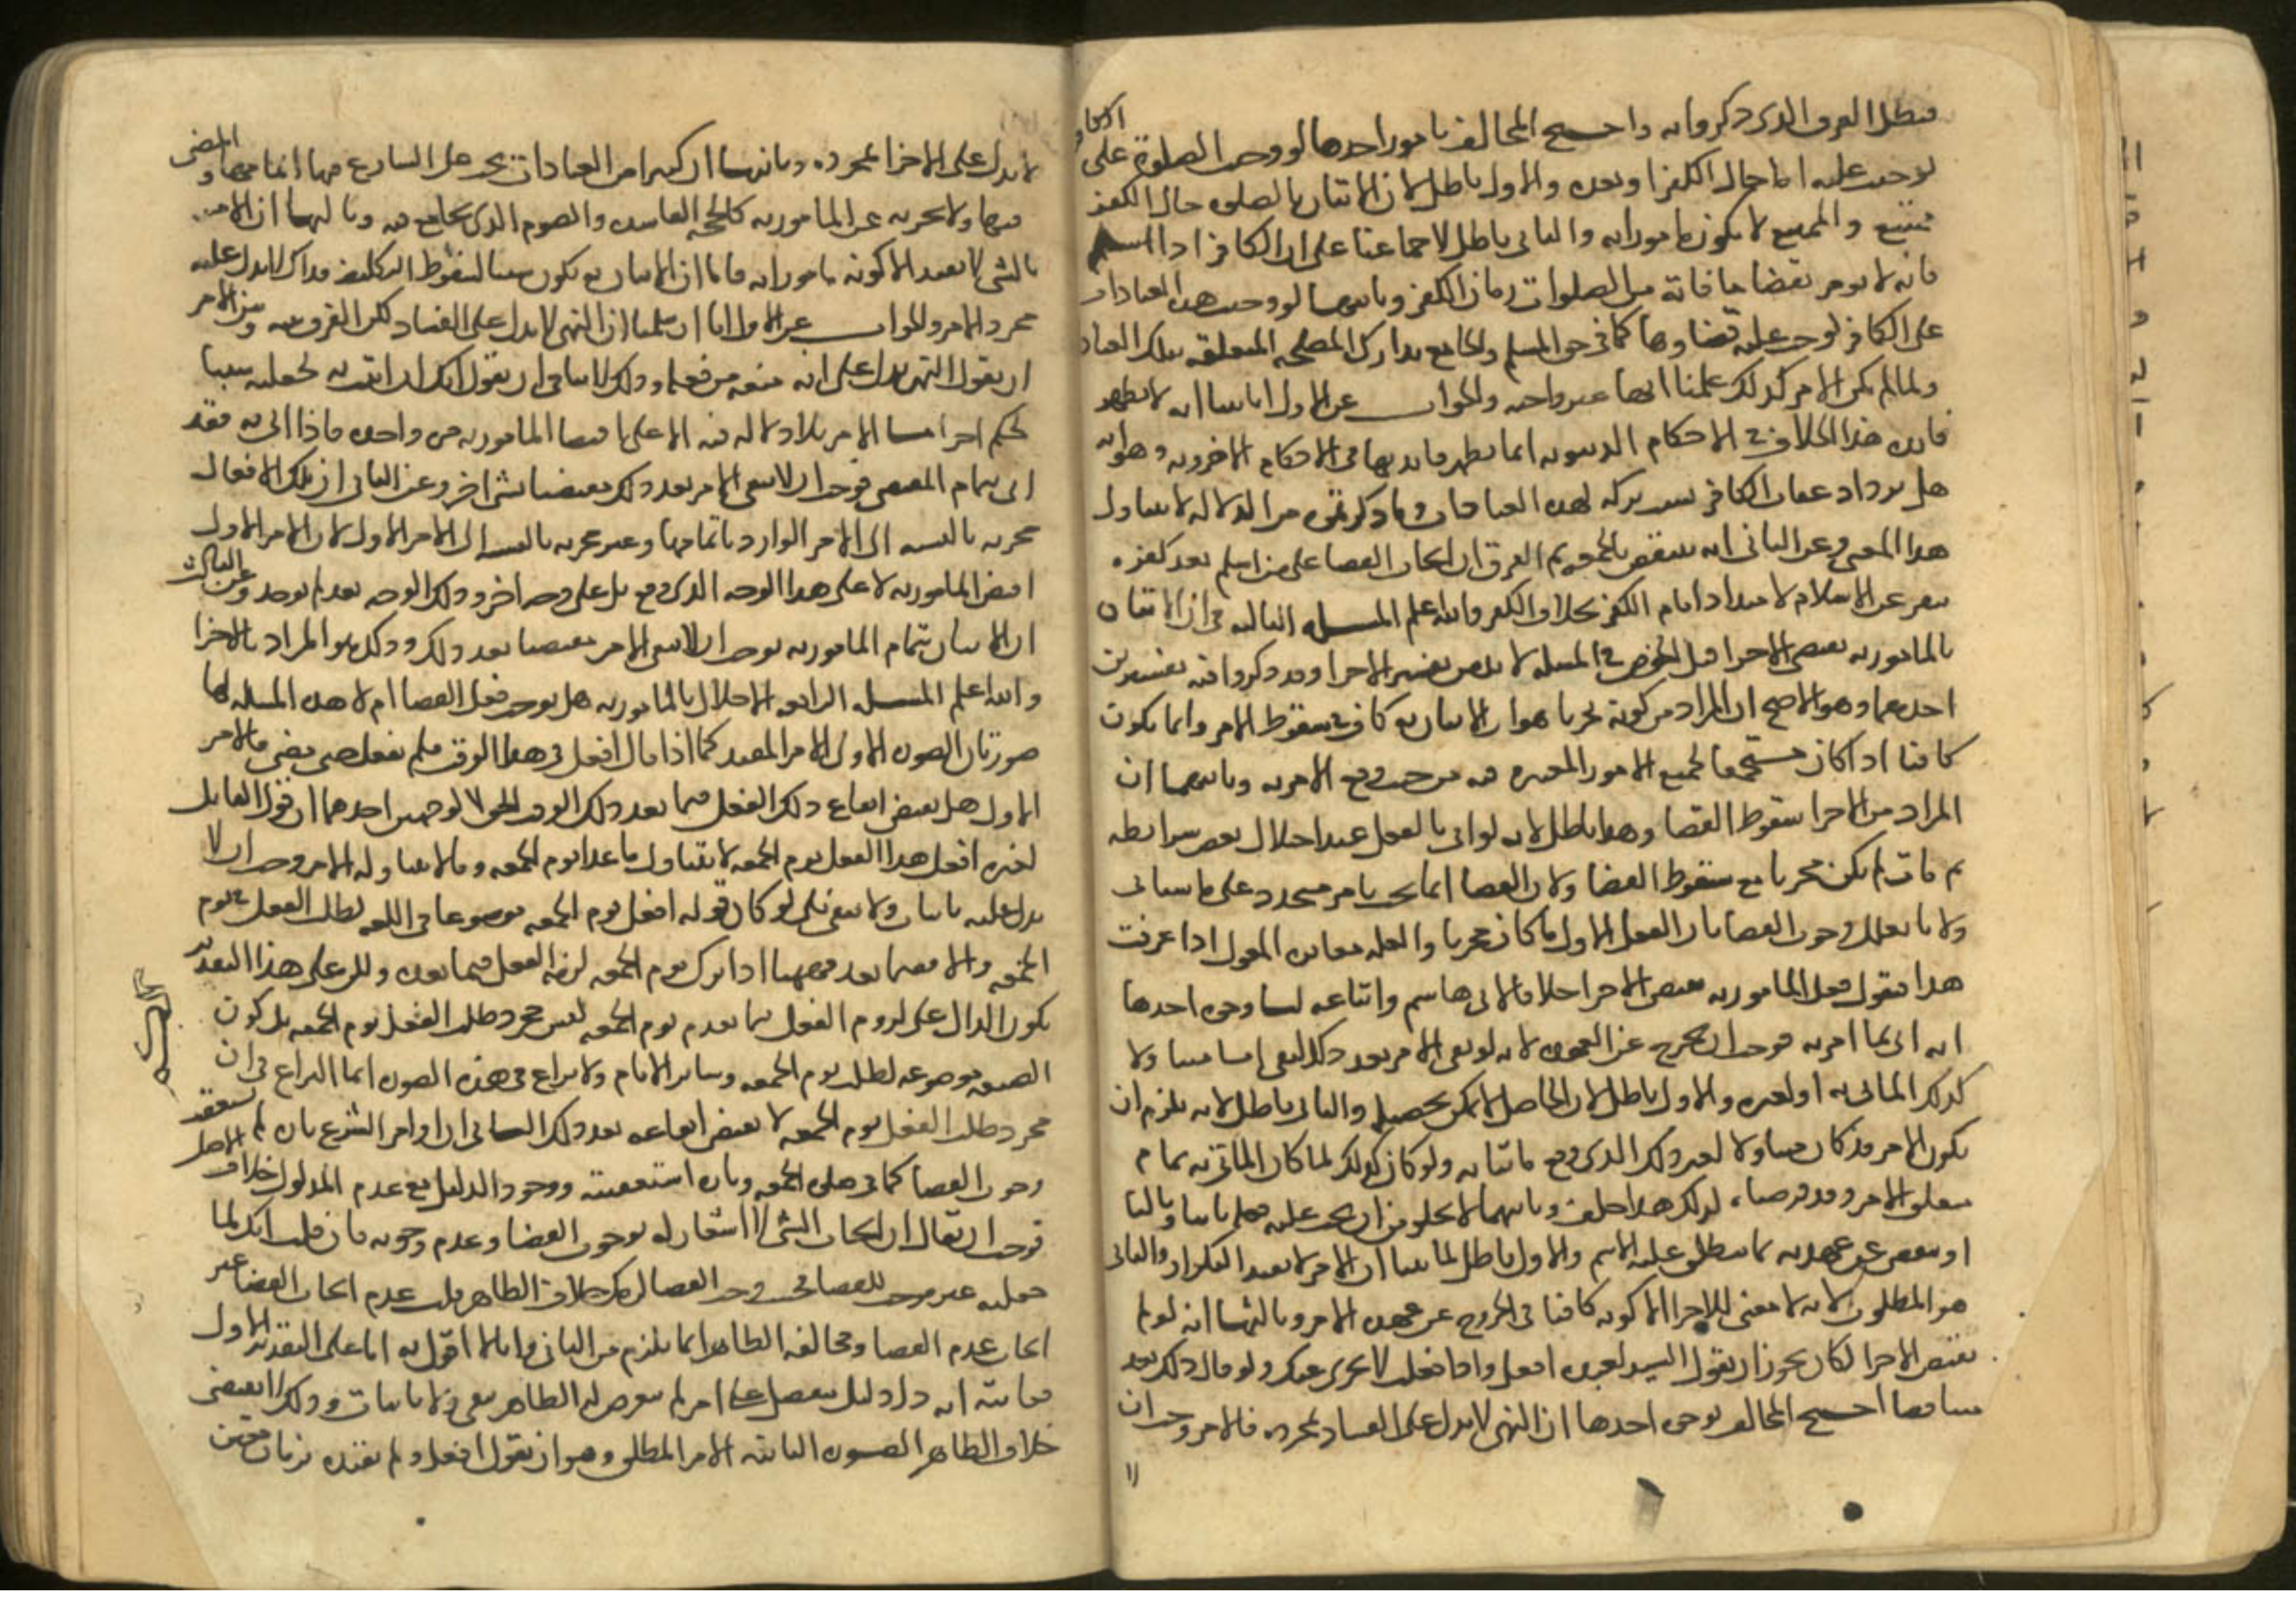 فبطل الفرق الذي ذكروا به واحتج المخالف بامور احدها لو وجب الصلوة على الكافر
لوجبت عليه اما حال الكفر او بعده والاول باطل لان الاتيان بالصلوه حال الكفر
ممتنع والممتنع لا يكون مامورا به والثاني باطل لاجماعنا على ان الكافر اذا اسلم
فانه لا يومر بقضا ما فاته من الصلوات زمان الكفر وثانيها لو وجبت هذه العبادات
على الكافر لوجب عليه قضاوها كما في حق المسلم والجامع تدارك المصلحه المتعلقه بتلك العبادات
ولما لم يكن الامر كذلك علمنا انها غير واجبه والجواب عن الاول انا بينا انه لا تظهر
فايده هذا الخلاف في الاحكام الدنيويه انما تظهر فايدتها في الاحكام الاخرويه وهو انه
هل يزداد عقاب الكافر بسبب تركه لهذه العبادات وما ذكرتموه من الدلاله لا يتناول
هذا المعنى وعن الثاني انه ينتقض بالجمعه ثم الفرق ان ايجاب القضا على من اسلم بعد كفره
ينفر عن الاسلام لامتداد ايام الكفر بخلاف والله اعلم المسله الثالثه في ان الاتيان
بالمامور به يقتضي الاجزا قبل الخوض في المسله لا بد من تفسير الاجزا وقد ذكروا فيه تفسيرين
احدهما وهو الاصح ان المراد من كونه مجزيا هو ان الاتيان به كاف في سقوط الامر وانما يكون
كافيا اذا كان مستجمعا لجميع الامور المعتبره فيه من حيث وقع الامر به وثانيهما ان
المراد من الاجزا سقوط القضا وهذا باطل لانه لو اتى بالفعل عند اختلال بعض شرايطه
ثم مات لم يكن مجزيا مع سقوط القضا ولان القضا انما يجب بامر متجدد على ما سياتي
ولانا نعلل وجوب القضا بان الفعل الاول ما كان مجزيا والعله مغايره للمعلول اذا عرفت
هذا فنقول فعل المامور به يقتضي الاجزا خلافا لابي هاشم واتباعه لنا وجوه احدها
انه اتى بما امر به فوجب ان يخرج عن العهده لانه لو بقي الامر بعد ذلك لبقي اما متناولا
لذلك الماتي به او لغيره والاول باطل لان الحاصل لا يمكن تحصيله والثاني باطل لانه يلزم ان
يكون الامر قد كان متناولا لغير ذلك الذي وقع ماتيا به ولو كان كذلك لما كان الماتي به تمام
متعلق الامر وقد فرضناه كذلك هذا خلف وثانيهما لا يخلو من ان يجب عليه فعله ثانيا وثالثا
او ينقضي عن عهدته بما ينطلق عليه الاسم والاول باطل لما بينا ان الامر لا يفيد التكرار والثاني
هو المطلوب لانه لا معنى للاجزا الا كونه كافيا في الخروج عن عهده الامر وثالثها انه لو لم
يقتض الاجزا لكان يجوز ان يقول السيد لعبده افعل واذا فعلت لا يجزي عنك ولو قال ذلك لعد
متناقضا احتج المخالف بوجوه احدها ان النهي لا يدل على الفساد بمجرده فالامر وجب ان
لا يدل على الاجزا بمجرده وثانيها ان كثيرا من العبادات يجب على الشارع فيها اتمامها والمضي
فيها ولا تجزيه عن المامور به كالحجه الفاسده والصوم الذي جامع فيه وثالثها ان الامر
بالشي لا يفيد الا كونه مامورا به فاما ان الاتيان به يكون سببا لسقوط التكليف فذاك لا يدل عليه
مجرد الامر والجواب عن الاول انا ان سلمنا ان النهي لا يدل على الفساد لكن الفرق بينه وبين الامر
ان يقول النهي يدل على انه منعه من فعله وذلك لا ينافي ان يقول انك ان اتيت به جعلته سببا
لحكم اخر اما الامر فلا دلاله فيه الا على اقتضا المامور به مره واحده فاذا اتى به فقد
اتى بتمام المقتضى فوجب ان لا يبقى الامر بعد ذلك مقتضيا لشي اخر وعن الثاني ان تلك الافعال
مجزيه بالنسبه الى الامر الوارد باتمامها وغير مجزيه بالنسبه الى الامر الاول لان الامر الاول
اقتضى المامور به لا على هذا الوجه الذي وقع بل على وجه اخر وذلك الوجه بعد لم يوجد وعن الثالث
ان الاتيان بتمام المامور به يوجب ان لا يبقى الامر مقتضيا بعد ذلك وذلك هو المراد بالاجزا
والله اعلم المسله الرابعه الاخلال بالمامور به هل يوجب فعل القضا ام لا هذه المسله لها
صورتان الصوره الاولى الامر المقيد كما اذا قال افعل في هذا الوقت فلم يفعل حتى مضى فالامر
الاول هل يقتضي ايقاع ذلك الفعل فيما بعد ذلك الوقت الحق لا لوجهين احدهما ان قول القايل
لغيره افعل هذا الفعل يوم الجمعه لا يتناول ما عدا يوم الجمعه وما لا يتناوله الامر وجب ان لا
يدل عليه باثبات ولا بنفي بلى لو كان قوله افعل يوم الجمعه موضوعا في اللغه لطلب الفعل في يوم
الجمعه والا ففيما بعد فهاهنا اذا ترك يوم الجمعه لزمه الفعل فيما بعده ولكن على هذا التقدير
يكون الدال على لزوم الفعل فيما بعد يوم الجمعه ليس مجرد طلب الفعل يوم الجمعه بل كون
الصيغه موضوعه لطلب يوم الجمعه وساير الايام ولا نزاع في هذه الصوره انما النزاع في ان
مجرد طلب الفعل يوم الجمعه لا يقتضي ايقاعه بعد ذلك الثاني ان اوامر الشرع تاره لم تستعقب
وجوب القضا كما في صلوه الجمعه وتاره استعقبته ووجود الدليل مع عدم المدلول خلاف الاصل
فوجب ان يقال ان ايجاب الشي لا اشعار له بوجوب القضا وعدم وجوبه فان قلت انك لما
جعلته غير موجب للقضا فحيث وجب القضا لزمك خلاف الظاهر قلت عدم ايجاب القضا غير
ايجاب عدم القضا ومخالفه الظاهر انما يلزم من الثاني وانا لا اقول به اما على التقدير الاول
فغايته انه دل دليل منفصل على امر لم يتعرض له الظاهر بنفي ولا باثبات وذلك لا يقتضي
خلاف الظاهر الصوره الثانيه الامر المطلق وهو ان يقول افعل ولم يقيده بزمان معين